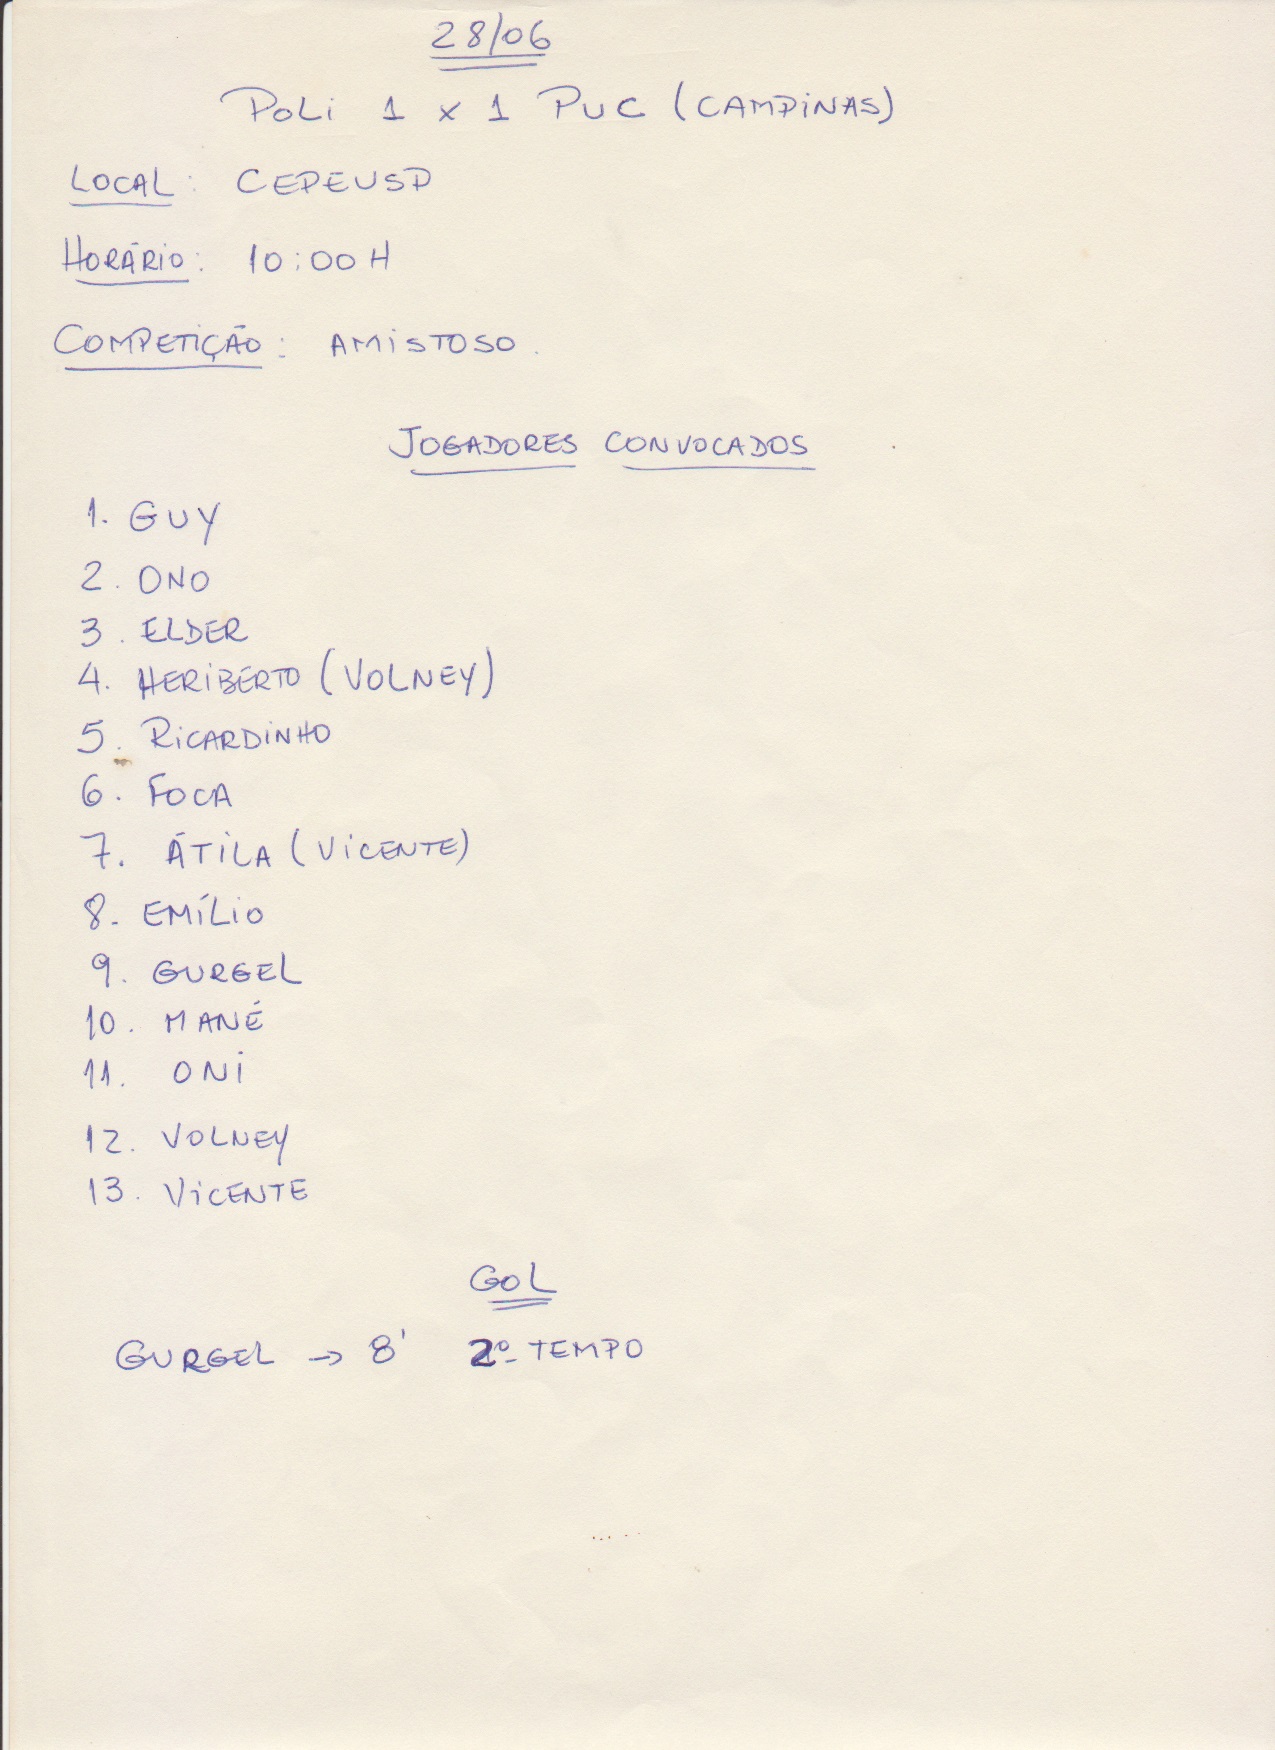 28/06
POLi 1 x 1 PUC (CAMPiNAS)
LOCAL: CEPEUSP
HORÁRiO: 10:00 H
COMPETiÇÃO: AMiSTOSO.
JOGADORES CONVOCADOS
1. GUY
2. ONO
3. ELDER
4. HERiBERTO (VOLNEY)
5. RiCARDiNHO
6. FOCA
7. ÁTiLA (ViCENTE)
8. EMÍLiO
9. GURGEL
10. MANÉ
11. ONi
12. VOLNEY
13. ViCENTE
GOL
GURGEL → 8' 2º TEMPO